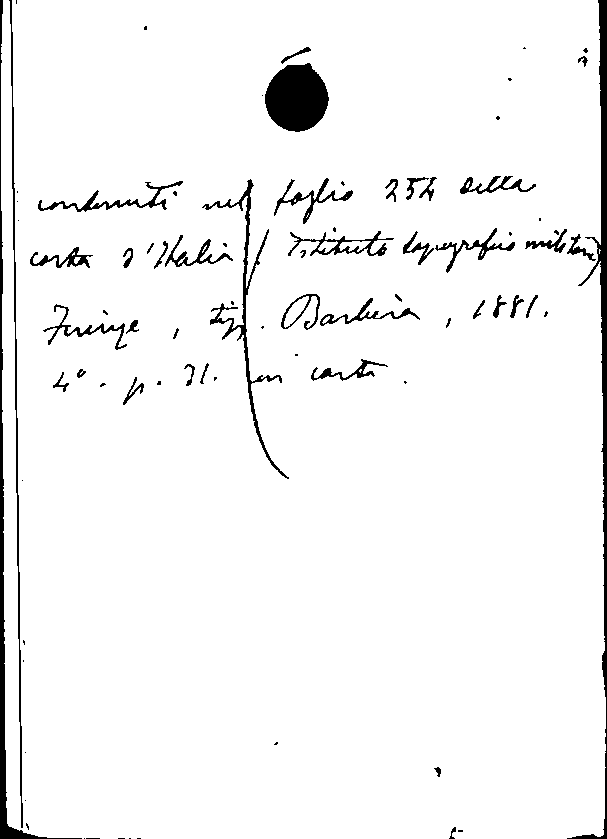 contenuti nel foglio 254 della
carta d'Italia (Istituto topografico militare)
Firenze, tip. Barbèra, 1881.
4° - p. 31. con carta.